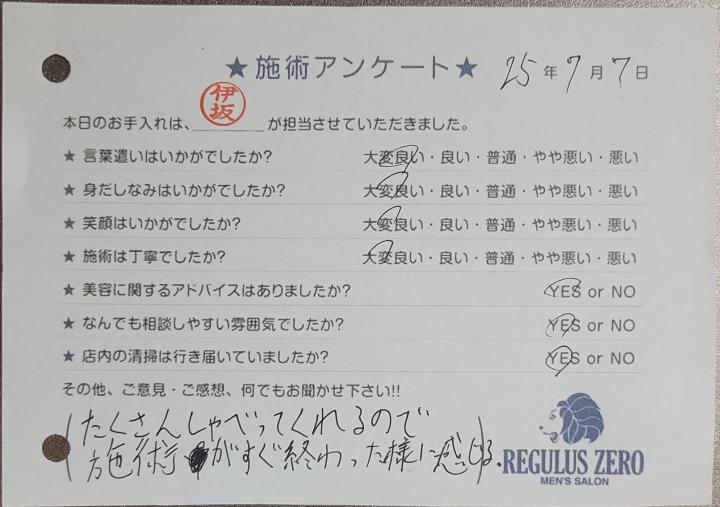 ★施術アンケート★ 25年7月7日
本日のお手入れは、伊坂が担当させていただきました。
★ 言葉遣いはいかがでしたか? 大変良い・良い・普通・やや悪い・悪い
★ 身だしなみはいかがでしたか? 大変良い・良い・普通・やや悪い・悪い
★ 笑顔はいかがでしたか? 大変良い・良い・普通・やや悪い・悪い
★ 施術は丁寧でしたか? 大変良い・良い・普通・やや悪い・悪い
★ 美容に関するアドバイスはありましたか? YES or NO
★ なんでも相談しやすい雰囲気でしたか? YES or NO
★ 店内の清掃は行き届いていましたか? YES or NO
その他、ご意見・ご感想、何でもお聞かせ下さい!!
たくさんしゃべってくれるので
施術がすぐ終わった様に感じる.
REGULUS ZERO
MEN'S SALON